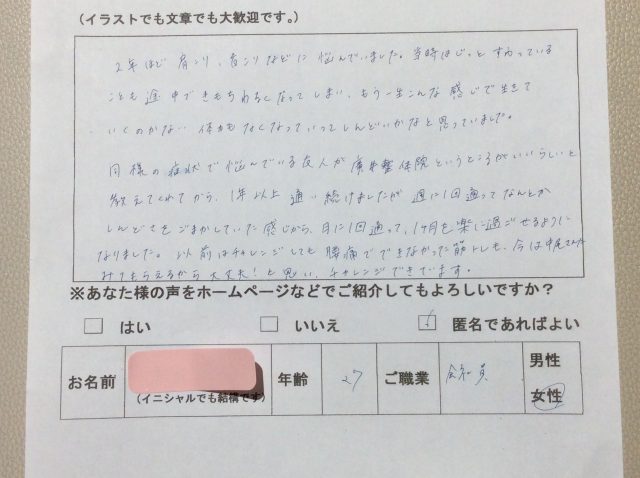 (イラストでも文章でも大歓迎です。)
2年ほど肩こり、首こりなどに悩んでいました。当時はじっとすわっている
ことも途中できもちわるくなってしまい、もう一生こんな感じで生きて
いくのかな… 体力もなくなっていってしんどいかなと思っていました。
同様の症状で悩んでいる友人が 整体院というところがいいらしいと
教えてくれてから、1年以上通い続けましたが 週に1回通ってなんとか
しんどさをごまかしていた感じから、月に1回通って、1ヶ月を楽に過ごせるように
なりました。以前はチャレンジしても腰痛でできなかった筋トレも、今は中尾さんに
みてもらえるから大丈夫!と思い、チャレンジできてます。
※あなた様の声をホームページなどでご紹介してもよろしいですか?
はい いいえ 匿名であればよい
お名前 (イニシャルでも結構です) 年齢 27 ご職業 会社員 男性
女性